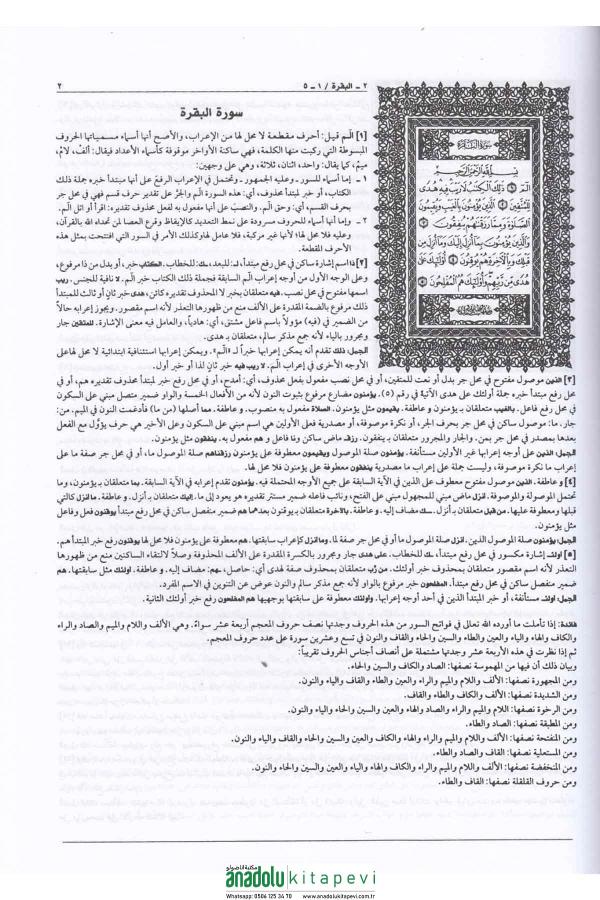 ٢ - البقرة / ١ - ٥
٢
سورة البقرة
سورة البقرة
بسم الله الرحمن الرحيم
الم ذلك الكتب لا ريب فيه هدى
للمتقين الذين يؤمنون بالغيب ويقيمون
الصلوة ومما رزقنهم ينفقون
والذين يؤمنون بما أنزل إليك وما أنزل من
قبلك وبالآخرة هم يوقنون أولئك على
هدى من ربهم وأولئك هم المفلحون
[١] الم قيل: أحرف مقطعة لا محل لها من الإعراب، والأصح أنها أسماء مسمياتها الحروف
المبسوطة التي ركبت منها الكلمة، فهي ساكنة الأواخر موقوفة كأسماء الأعداد فيقال: ألف، لام،
ميم، كما يقال: واحد، اثنان، ثلاثة، وهي على وجهين:
١ - إما أسماء للسور - وعليه الجمهور - وتحتمل في الإعراب الرفع على أنها مبتدأ خبره جملة ذلك
الكتاب، أو خبر لمبتدأ محذوف، أي: هذه السورة الم والجر على تقدير حرف قسم فهي في محل جر
بحرف القسم، أي: وحق الم. والنصب على أنها مفعول به لفعل محذوف تقديره: اقرأ أو اتل الم.
٢ - وإما أنها أسماء للحروف مسرودة على نمط التعديد كالإيقاظ وقرع العصا لمن تحداه الله بالقرآن،
وعليه فلا محل لها؛ لأنها غير مركبة، فلا عامل لها وكذلك الأمر في السور التي افتتحت بمثل هذه
الأحرف المقطعة.
[٢] ذا اسم إشارة ساكن في محل رفع مبتدأ، ل: للبعد، ك: للخطاب. الكتب خبر، أو بدل من ذا مرفوع،
وعلى الوجه الأول من أوجه إعراب الم السابقة فجملة ذلك الكتاب خبر الم. لا نافية للجنس. ريب
اسمها مفتوح في محل نصب. فيه متعلقان بخبر لا المحذوف تقديره كائن. هدى خبر ثان أو ثالث للمبتدأ
ذلك مرفوع بالضمة المقدرة على الألف منع من ظهورها التعذر لأنه اسم مقصور. ويجوز إعرابه حالاً
من الضمير في (فيه) مؤولاً باسم فاعل مشتق، أي: هادياً، والعامل فيه معنى الإشارة. للمتقين جار
ومجرور بالياء لأنه جمع مذكر سالم، متعلقان بـ هدى.
الجمل: ذلك تقدم أنه يمكن إعرابها خبراً لـ «الم». ويمكن إعرابها استئنافية ابتدائية لا محل لها على
الأوجه الأخرى في إعراب الم. لا ريب فيه خبر ثان لذا أو خبر أول.
[٣] الذين موصول مفتوح في محل جر بدل أو نعت للمتقين، أو في محل نصب مفعول بفعل محذوف، أي: أمدح، أو في محل رفع خبر لمبتدأ محذوف تقديره هم، أو في
محل رفع مبتدأ خبره جملة أولئك على هدى الآتية في رقم (٥). يؤمنون مضارع مرفوع بثبوت النون لأنه من الأفعال الخمسة والواو ضمير متصل مبني على السكون
في محل رفع فاعل. بالغيب متعلقان بـ يؤمنون و عاطفة. يقيمون مثل يؤمنون. الصلاة مفعول به منصوب. و عاطفة. مما أصلها (من ما) فأدغمت النون في الميم. من:
جار. ما: موصول ساكن في محل جر بحرف الجر، أو نكرة موصوفة، أو مصدرية فعلى الأولين هي اسم مبني على السكون وعلى الأخير هي حرف يؤوّل مع الفعل
بعدها بمصدر في محل جر بمن. والجار والمجرور متعلقان بـ ينفقون. رزق ماض ساكن ونا فاعل و هم مفعول به. ينفقون مثل يؤمنون.
الجمل: الذين على أوجه إعرابها غير الأولين مستأنفة. يؤمنون صلة الموصول ويقيمون معطوفة على يؤمنون رزقناهم صلة الموصول ما، أو في محل جر صفة ما على
إعراب ما نكرة موصوفة، وليست جملة على إعراب ما مصدرية ينفقون معطوفة على يؤمنون فلا محل لها.
[٤] و عاطفة. الذين موصول مفتوح معطوف على الذين في الآية السابقة على جميع الأوجه المحتملة فيه. يؤمنون تقدم إعرابه في الآية السابقة. بما متعلقان بـ يؤمنون، وما
تحتمل الموصولة والموصوفة. انزل ماض مبني للمجهول مبني على الفتح، ونائب فاعله ضمير مستتر تقديره هو يعود إلى ما. إليك متعلقان بـ أنزل. و عاطفة. ما انزل كالتي
قبلها ومعطوفة عليها. من قبل متعلقان بـ أنزل. ـك مضاف إليه. و عاطفة. بالاخرة متعلقان بـ يوقنون بعدها هم ضمير منفصل ساكن في محل رفع مبتدأ يوقنون فعل وفاعل
مثل يؤمنون.
الجمل: يؤمنون صلة الموصول الذين. انزل صلة الموصول ما أو في محل جر صفة لما. وما انزل كإعراب سابقتها. هم معطوفة على يؤمنون فلا محل لها يوقنون رفع خبر المبتدأ هم.
[٥] اولئـ إشارة مكسور في محل رفع مبتدأ، ـك للخطاب. على هدى جار ومجرور بالكسرة المقدرة على الألف المحذوفة وصلاً لالتقاء الساكنين منع من ظهورها
التعذر لأنه اسم مقصور متعلقان بمحذوف خبر أولئك. من رب متعلقان بمحذوف صفة لهدى أي: حاصل، ـهم: مضاف إليه. و عاطفة. اولئك مثل سابقتها. هم
ضمير منفصل ساكن في محل رفع مبتدأ. المفلحون خبر مرفوع بالواو لأنه جمع مذكر سالم والنون عوض عن التنوين في الاسم المفرد.
الجمل: اولئك مستأنفة، أو خبر المبتدأ الذين في أحد أوجه إعرابها. واولئك معطوفة على سابقتها بوجهيها هم المفلحون رفع خبر أولئك الثانية.
فائدة: إذا تأملت ما أورده الله تعالى في فواتح السور من هذه الحروف وجدتها نصف حروف المعجم أربعة عشر سواءً، وهي الألف واللام والميم والصاد والراء
والكاف والهاء والياء والعين والطاء والسين والحاء والقاف والنون في تسع وعشرين سورة على عدد حروف المعجم.
ثم إذا نظرت في هذه الأربعة عشر وجدتها مشتملة على أنصاف أجناس الحروف تقريباً:
وبيان ذلك أن فيها من المهموسة نصفها: الصاد والكاف والسين والحاء.
ومن المجهورة نصفها: الألف واللام والميم والراء والعين والطاء والقاف والياء والنون.
ومن الشديدة نصفها: الألف والكاف والطاء والقاف.
ومن الرخوة نصفها: اللام والميم والراء والصاد والهاء والعين والسين والحاء والياء والنون.
ومن المطبقة نصفها: الصاد والطاء.
ومن المنفتحة نصفها: الألف واللام والميم والراء والهاء والكاف والعين والسين والحاء والقاف والياء والنون.
ومن المستعلية نصفها: القاف والصاد والطاء.
ومن المنخفضة نصفها: الألف واللام والميم والراء والكاف والهاء والياء والعين والسين والحاء والنون.
ومن حروف القلقلة نصفها: القاف والطاء.
مكتبة الأناضول
anadolu kitapevi
Whatsapp: 0506 125 34 70 www.anadolukitapevi.com.tr